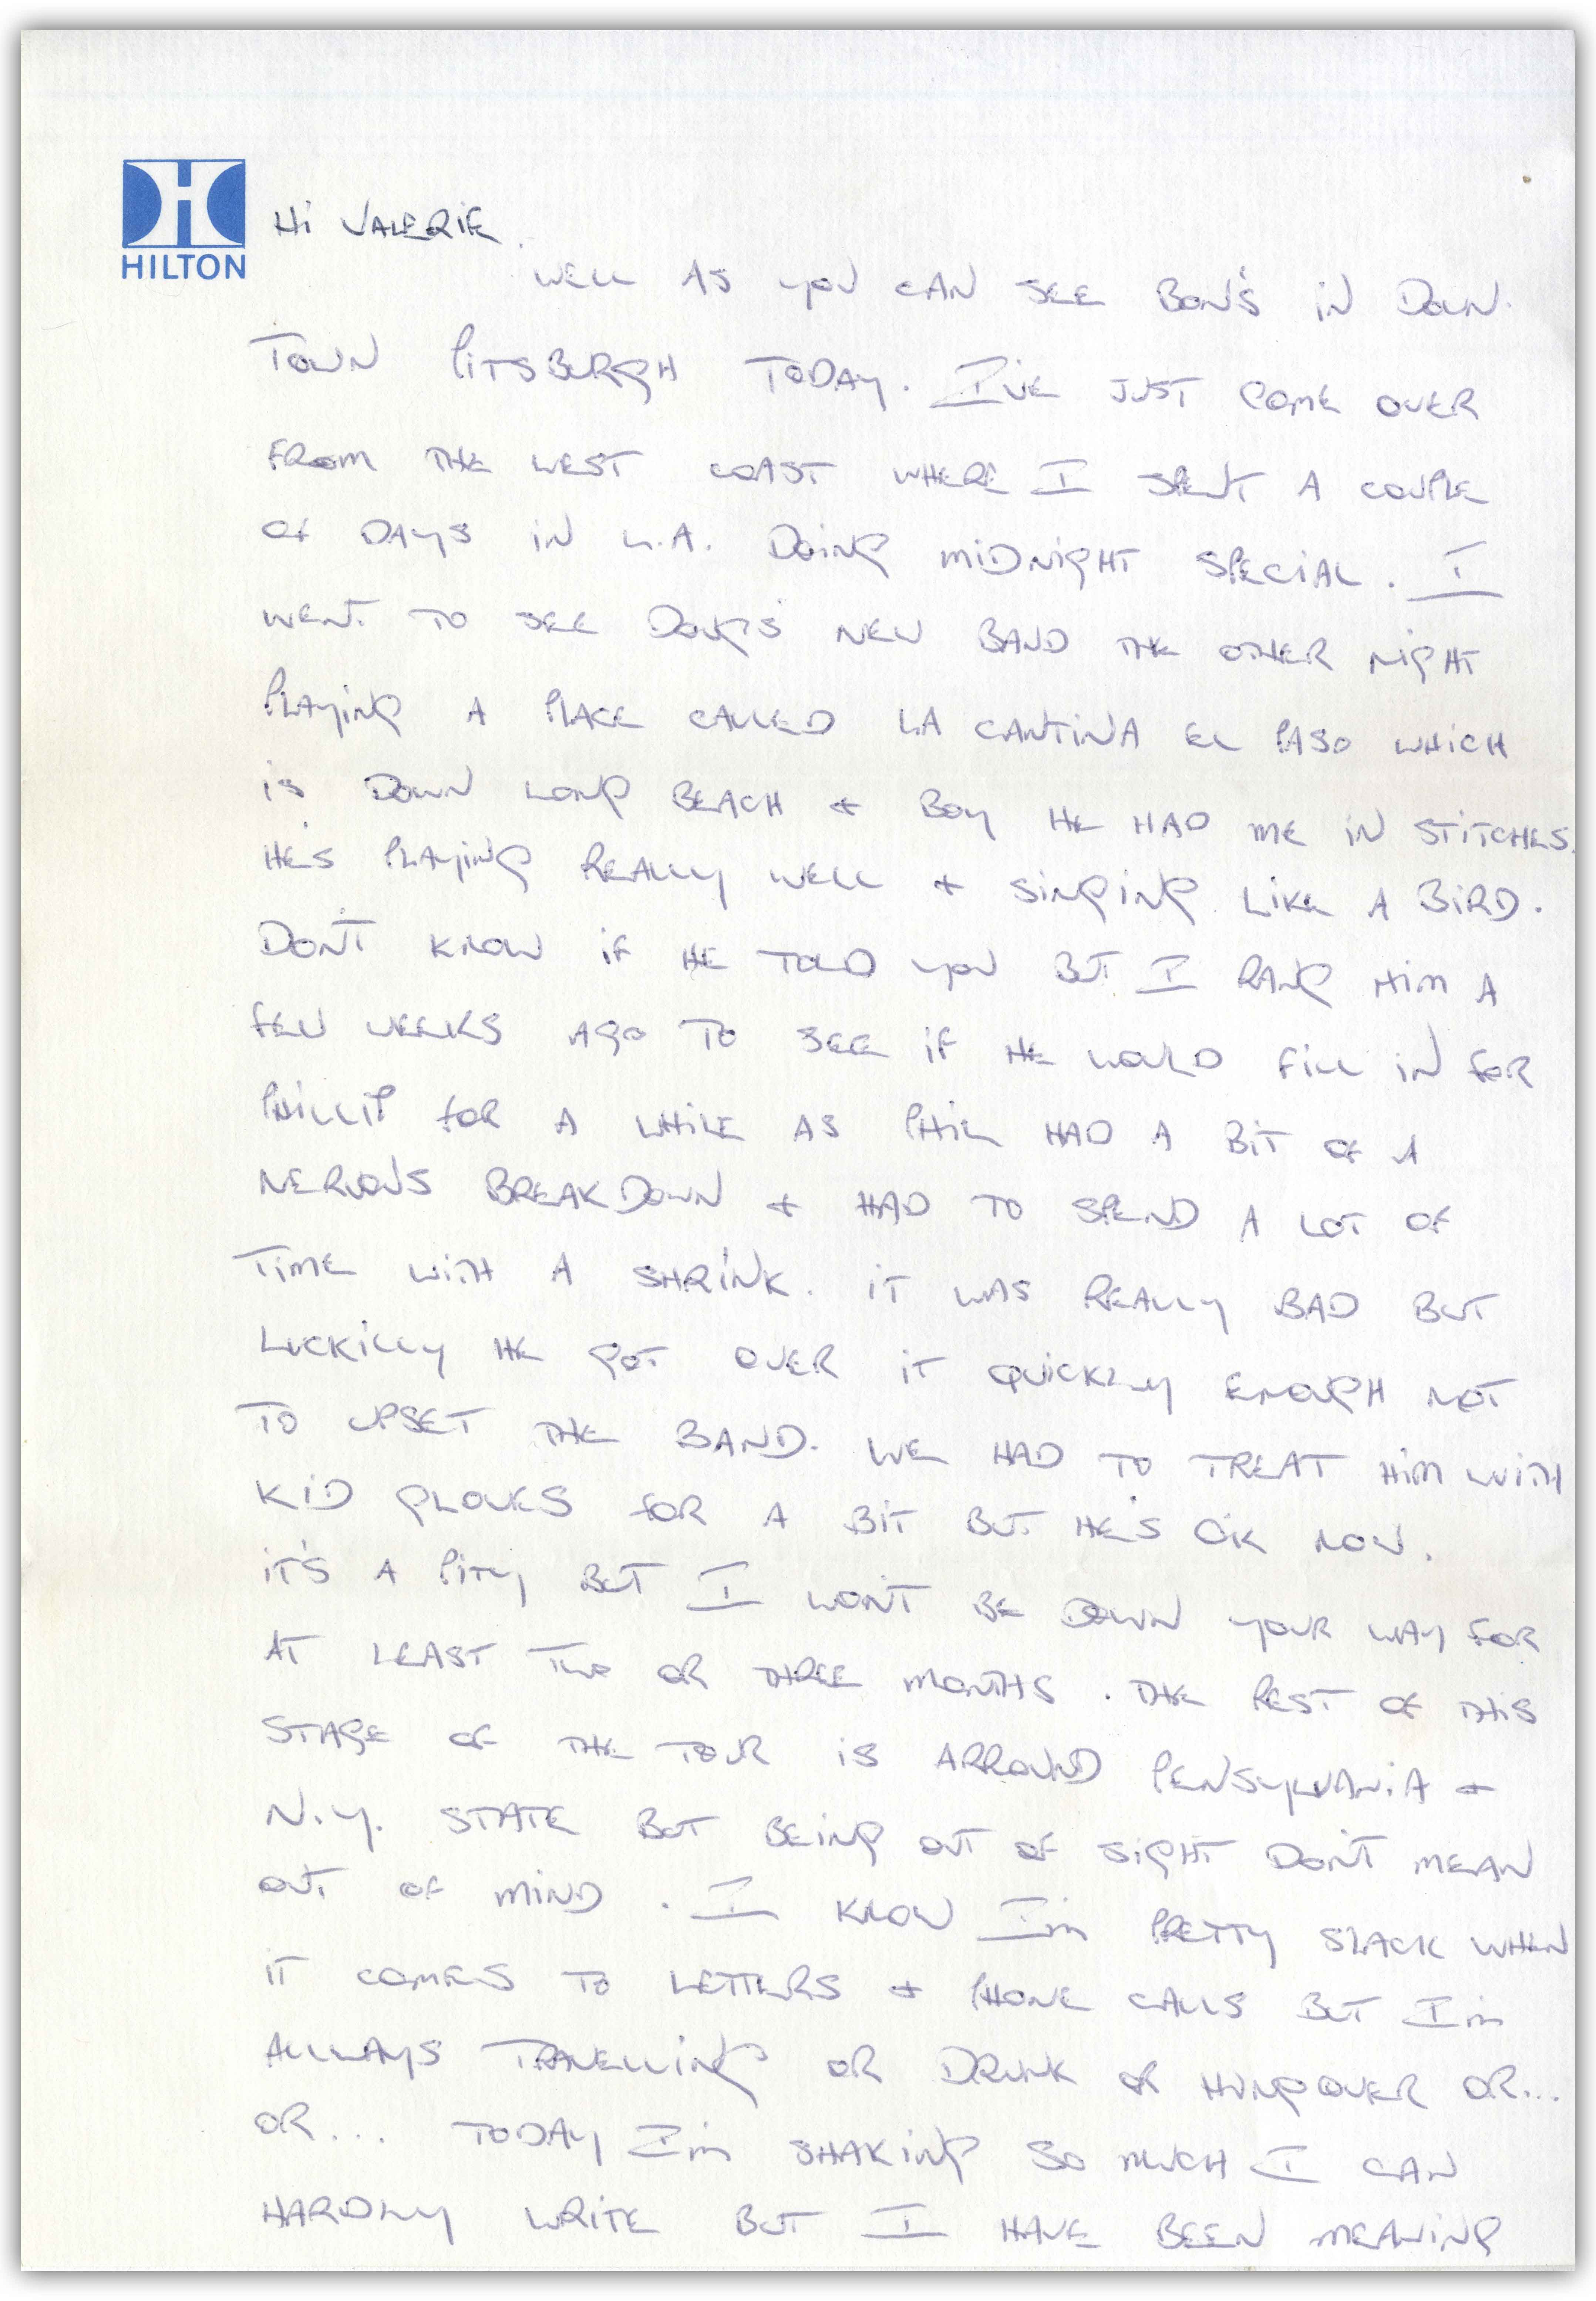 HILTON
Hi VALERIE.
WELL AS YOU CAN SEE BON'S IN DOWN.
TOWN PITSBURGH TODAY. I'VE JUST COME OVER
FROM THE WEST COAST WHERE I SPENT A COUPLE
OF DAYS IN L.A. DOING MIDNIGHT SPECIAL. I
WENT TO SEE DOUG'S NEW BAND THE OTHER NIGHT
PLAYING A PLACE CALLED LA CANTINA EL PASO WHICH
IS DOWN LONG BEACH & BOY HE HAD ME IN STITCHES.
HE'S PLAYING REALLY WELL & SINGING LIKE A BIRD.
DON'T KNOW IF HE TOLD YOU BUT I RANG HIM A
FEW WEEKS AGO TO SEE IF HE WOULD FILL IN FOR
PHILLIP FOR A WHILE AS PHIL HAD A BIT OF A
NERVOUS BREAKDOWN & HAD TO SPEND A LOT OF
TIME WITH A SHRINK. IT WAS REALLY BAD BUT
LUCKILLY HE GOT OVER IT QUICKLY ENOUGH NOT
TO UPSET THE BAND. WE HAD TO TREAT HIM WITH
KID GLOVES FOR A BIT BUT HE'S OK NOW.
IT'S A PITY BUT I WON'T BE DOWN YOUR WAY FOR
AT LEAST TWO OR THREE MONTHS. THE REST OF THIS
STAGE OF THE TOUR IS ARROUND PENSYLVANIA &
N.Y. STATE BUT BEING OUT OF SIGHT DON'T MEAN
OUT OF MIND. I KNOW I'm PRETTY SLACK WHEN
IT COMES TO LETTERS & PHONE CALLS BUT I'm
ALLWAYS TRAVELLING OR DRUNK OR HUNGOVER OR...
OR... TODAY I'm SHAKING SO MUCH I CAN
HARDLY WRITE BUT I HAVE BEEN MEANING